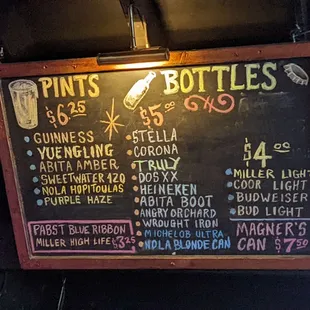 PINTS
$6.25
GUINNESS
YUENGLING
ABITA AMBER
SWEETWATER 420
NOLA HOPITOULAS
PURPLE HAZE
PABST BLUE RIBBON
MILLER HIGH LIFE $3.25
BOTTLES
$5.00
STELLA
CORONA
TRULY
DOS XX
HEINEKEN
ABITA BOOT
ANGRY ORCHARD
WROUGHT IRON
MICHELOB ULTRA
NOLA BLONDE CAN
$4.00
MILLER LIGHT
COOR LIGHT
BUDWEISER
BUD LIGHT
MAGNER'S
CAN $7.50